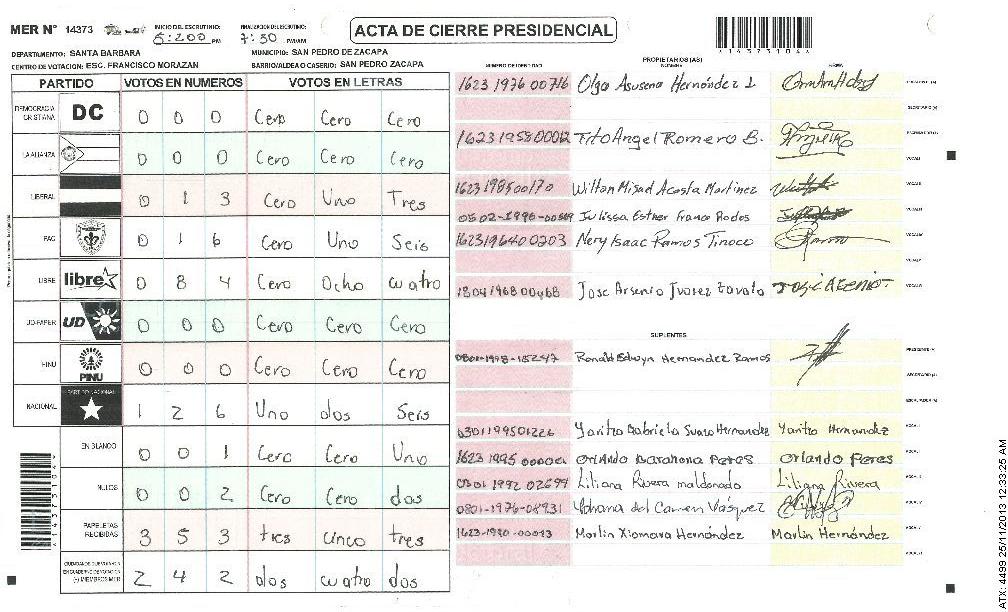 MER Nº 14373 INICIO DEL ESCRUTINIO: 5:200 PM FINALIZACION DEL ESCRUTINIO: 7:50 PM/AM
ACTA DE CIERRE PRESIDENCIAL
*14373104*
DEPARTAMENTO: SANTA BARBARA MUNICIPIO: SAN PEDRO DE ZACAPA
CENTRO DE VOTACION: ESC. FRANCISCO MORAZAN BARRIO/ALDEA O CASERIO: SAN PEDRO ZACAPA
PARTIDO VOTOS EN NUMEROS VOTOS EN LETRAS
DEMOCRACIA CRISTIANA DC 0 0 0 Cero Cero Cero
LA ALIANZA 0 0 0 Cero Cero Cero
LIBERAL 0 1 3 Cero Uno Tres
PAC 0 1 6 Cero Uno Seis
LIBRE libre 0 8 4 Cero Ocho cuatro
UD-FAPER UD 0 0 0 Cero Cero Cero
PINU PINU 0 0 0 Cero Cero Cero
NACIONAL PARTIDO NACIONAL 1 2 6 Uno dos Seis
EN BLANCO 0 0 1 Cero Cero Uno
NULOS 0 0 2 Cero Cero dos
PAPELETAS RECIBIDAS 3 5 3 tres cinco tres
(+) MIEMBROS MER 2 4 2 dos cuatro dos
PROPIETARIOS (AS)
NUMERO DE IDENTIDAD NOMBRE FIRMA
1623 1976 00716 Olga Asusena Hernández L
1623 1958 00012 Tito Angel Romero B.
1623 1985 00170 Wilton Misad Acosta Martinez
0502-1990-00509 Julissa Esther Franco Rodos
1623196400203 Nery Isaac Ramos Tinoco
1804 1968 00468 Jose Arsenio Juarez Zavala José Arsenio
SUPLENTES
0801-1998-18247 Ronald Edwyn Hernandez Ramos
0301199501226 Yaritza Gabriela Suazo Hernandez Yaritza Hernandez
1623 1995 Orlando Barahona Peres Orlando Peres
0301 1992 02699 Liliana Rivera maldonado Liliana Rivera
0801-1976-08931 Yohana del Carmen Vásquez
1623-1990-00093 Marlin Xiomara Hernández Marlin Hernández
*14373104*
ATX: 4499 25/11/2013 12:33:25 AM